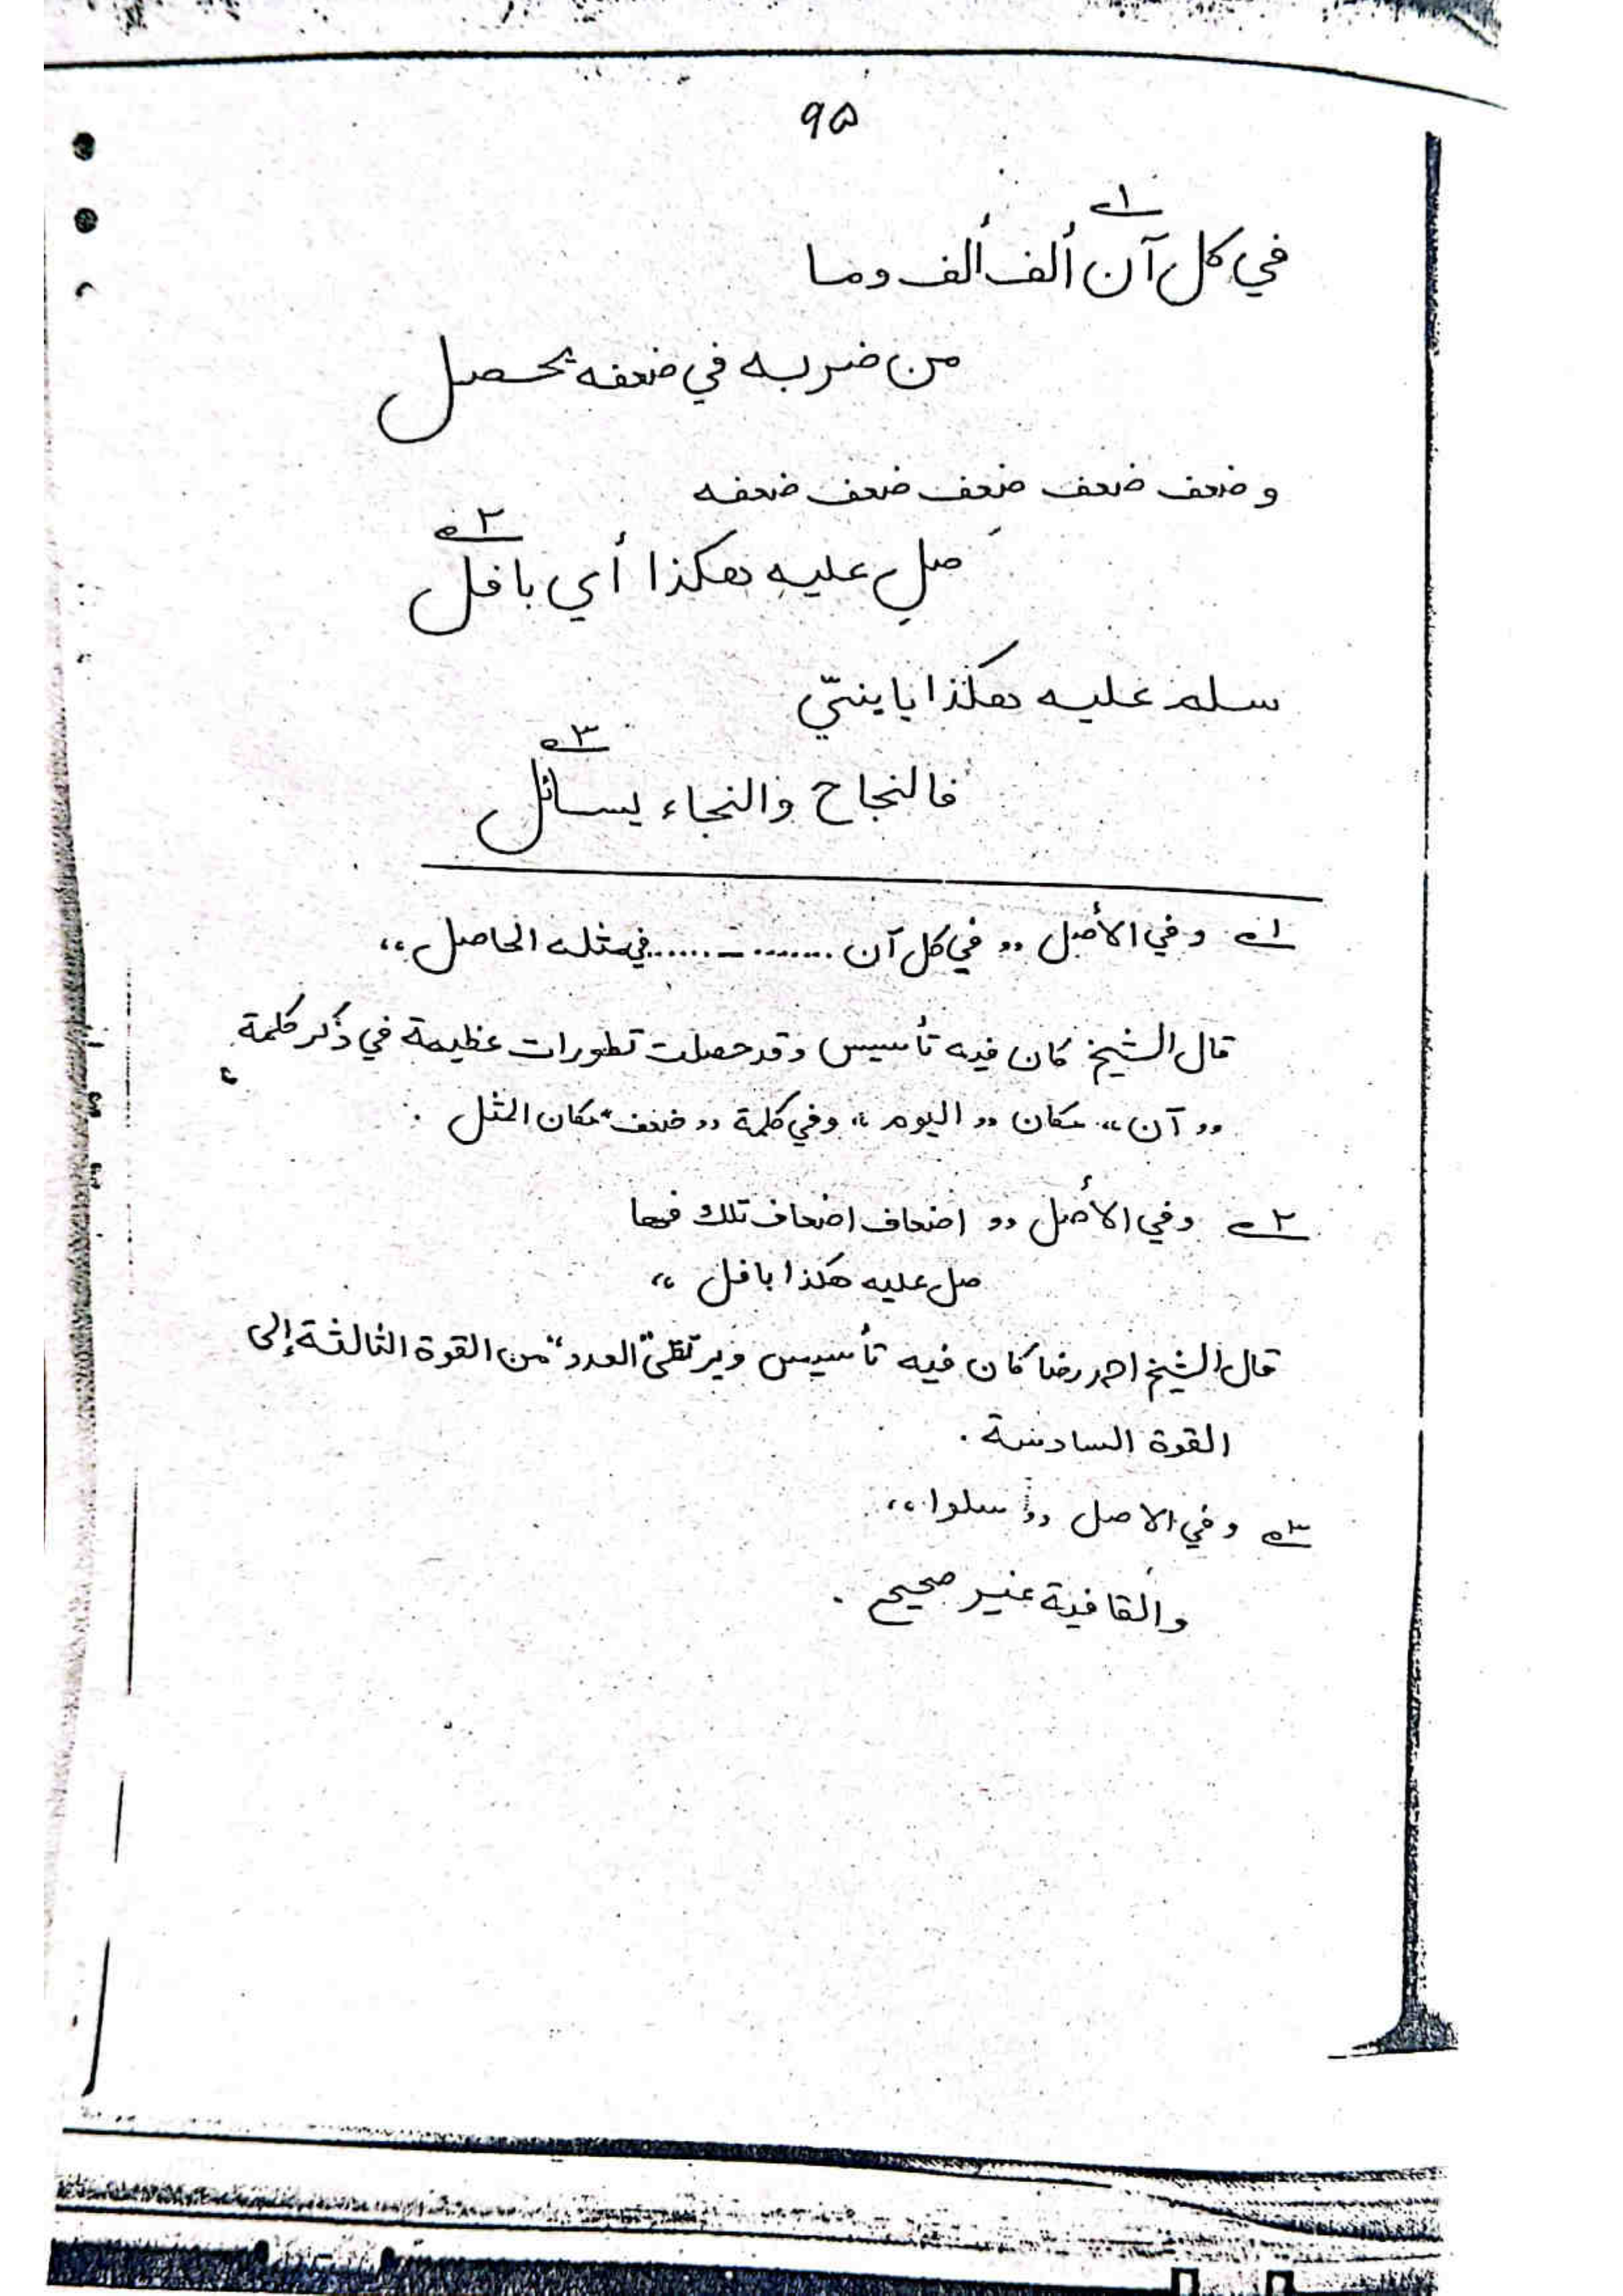 ۹۵
في كل آن ألف ألف وما ١ــه
من ضربه في ضعفه يحصل
و ضعف ضعف ضعف ضعف ضعفه
صل عليه هكذا أي بافل ٢ــه
سلم عليه هكذا يا بنيّ
فالنجاح والنجاء يسائل ٣ــه
١ــه وفي الأصل ,, في كل آن ........ــ.......في مثله الحاصل ،،
قال الشيخ كان فيه تأسيس وقد حصلت تطورات عظيمة في ذكر كلمة
,, آن ،، مكان ,, اليوم ،، وفي كلمة ,, ضعف ،، مكان المثل .
٢ــه وفي الأصل ,, اضعاف اضعاف تلك فيها
صل عليه هكذا بافل ،،
قال الشيخ احمد رضا كان فيه تأسيس ويرتقي "العدد" من القوة الثالثة إلى
القوة السادسة .
٣ــه و في الاصل ,, سلوا ،،
والقافية غير صحيح .